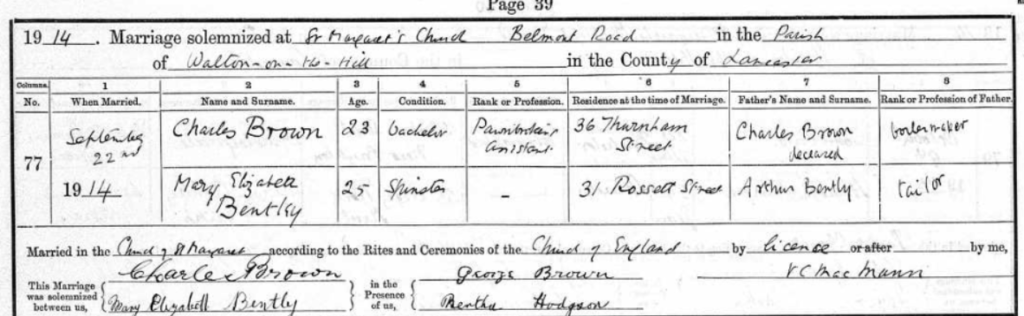 Page 39
1914. Marriage solemnized at St Margaret's Church Belmont Road in the Parish
of Walton-on-the-Hill in the County of Lancaster
Columns. 1 2 3 4 5 6 7 8
No. When Married. Name and Surname. Age. Condition. Rank or Profession. Residence at the time of Marriage. Father's Name and Surname. Rank or Profession of Father.
77 September 22nd 1914 Charles Brown 23 bachelor Pawnbroker's assistant 36 Thurnham Street Charles Brown deceased boilermaker
Mary Elizabeth Bentley 25 Spinster - 31 Rossett Street Arthur Bently tailor
Married in the Church of St Margaret according to the Rites and Ceremonies of the Church of England by licence or after by me,
This Marriage was solemnized between us, Charles Brown in the Presence of us, George Brown
Mary Elizabeth Bently Bertha Hodgson